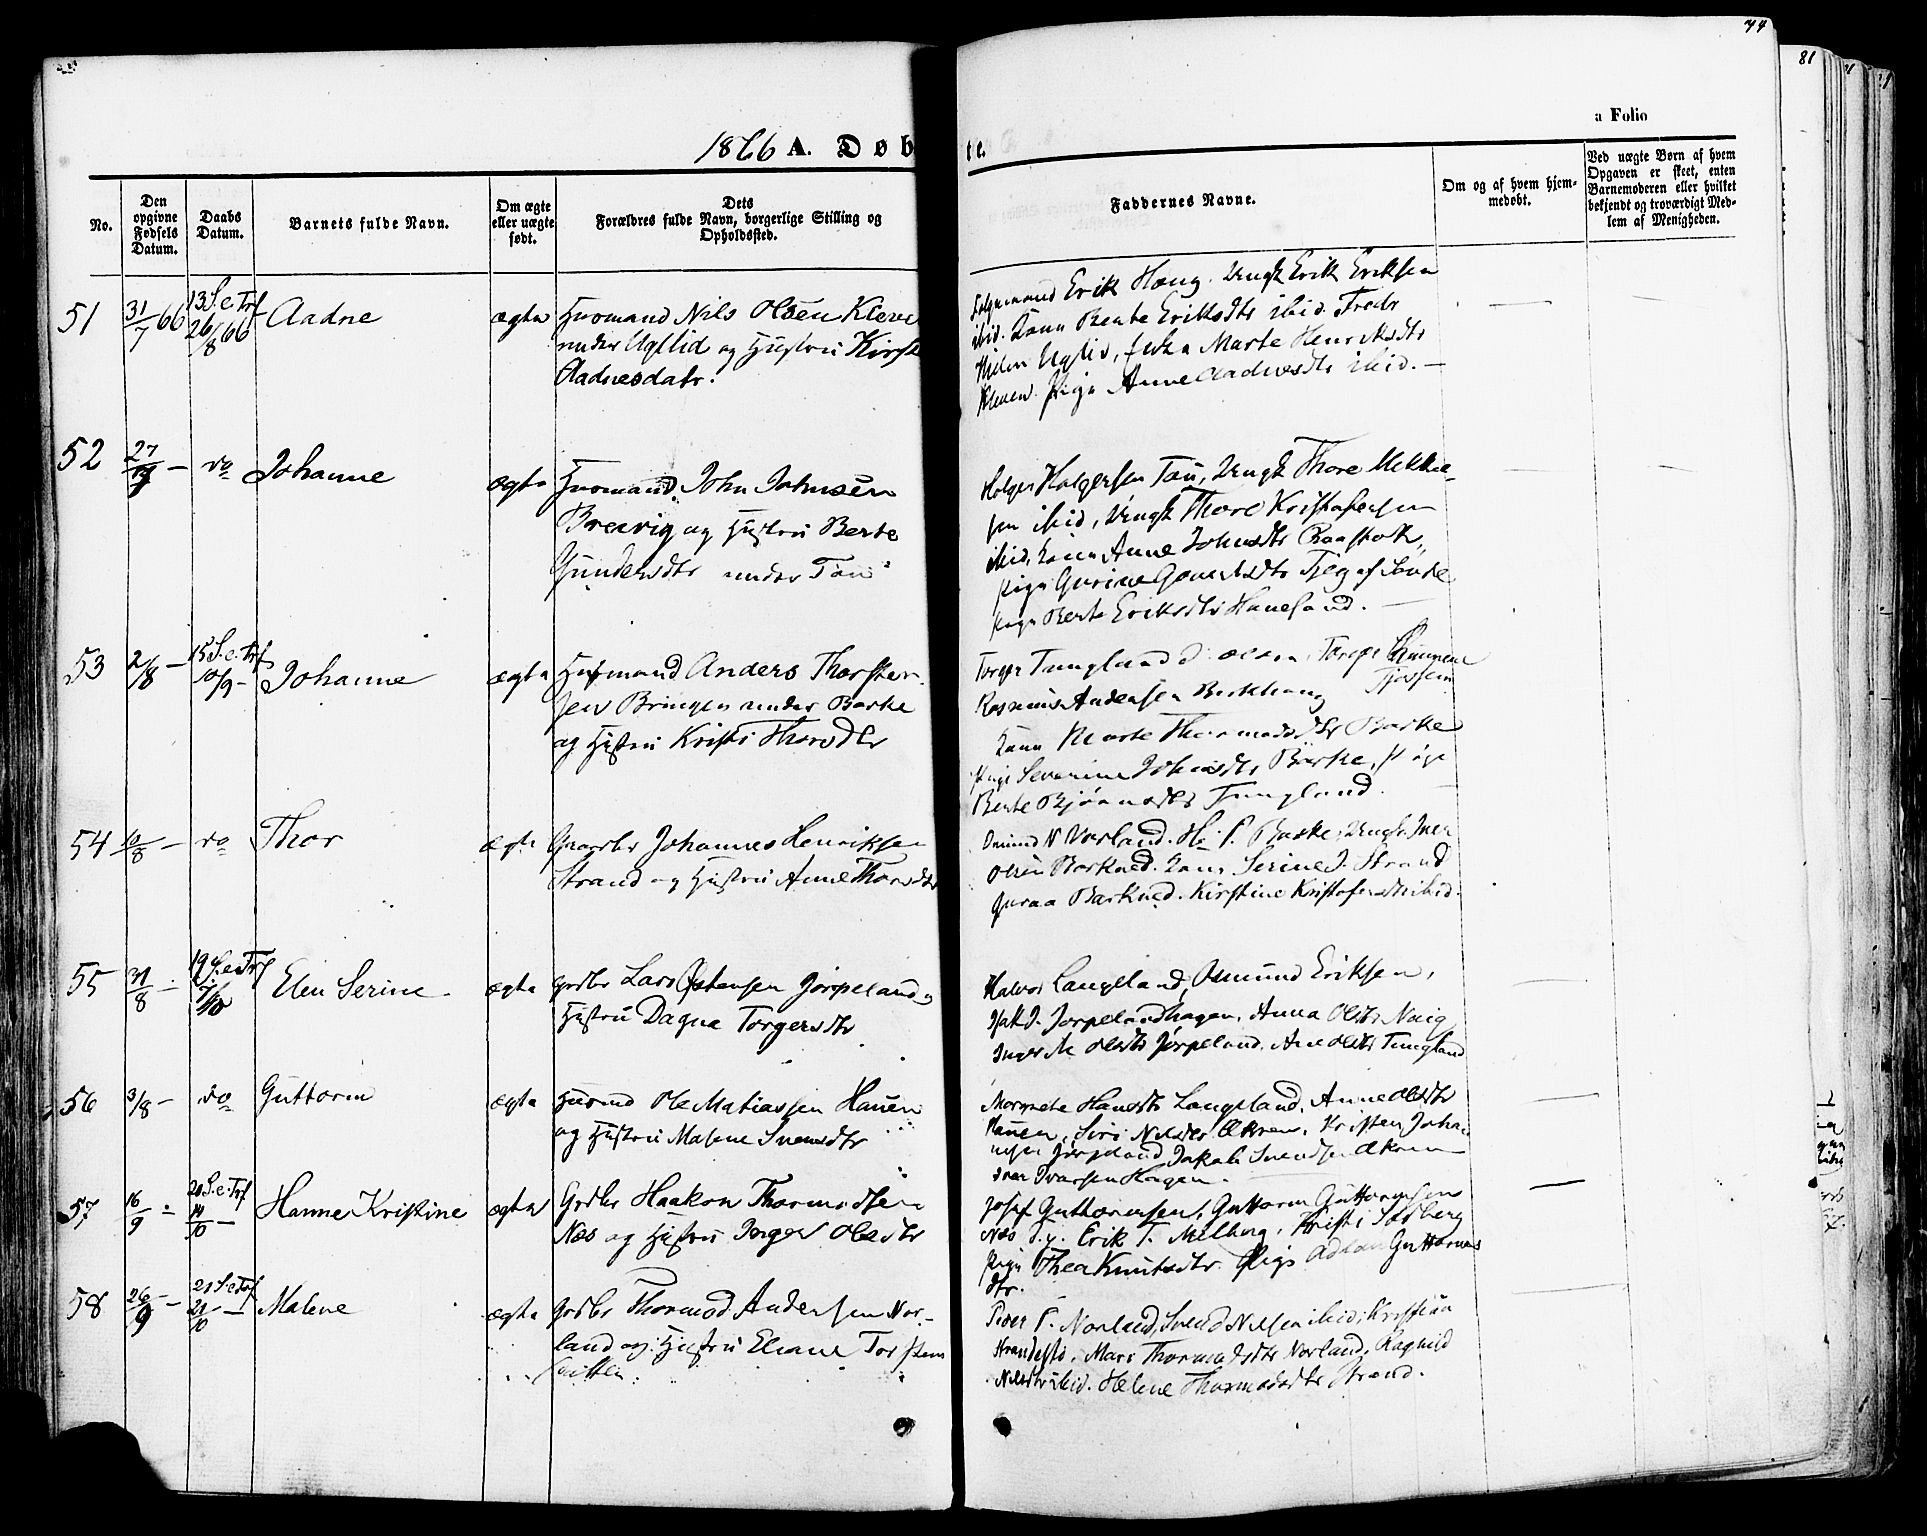 44
81
a Folio
1866 A. Døbte.
No.
Den opgivne Fødsels Datum.
Daabs Datum.
Barnets fulde Navn.
Om ægte eller uægte født.
Dets Forældres fulde Navn, borgerlige Stilling og Opholdssted.
Faddernes Navne.
Om og af hvem hjemmedøbt.
Ved uægte Børn af hvem Opgaven er skeet, enten Barnemoderen eller hvilket bekjendt og troværdigt Medlem af Menigheden.
51 31/7 66 13 S. e. Trf 26/8 66 Aadne ægte Huusmand Nils Olsen Kleve
under Ugllid og Hustru Kirst
Aadnesdatr.
Erik Haug. Ungk Erik Eriksen
ibid. Kone Berte Eriksdtr ibid.
Marte Henriksdtr
Kleven. Pige Anne Aadnesdtr ibid. —
52 27/7 — do Johanne ægte Huusmand John Johnsen
Brevig og Hustru Berte
Gundersdtr under Tau
Holger Holgersen Tau, Ungk Thore Mikkel-
sen ibid, Ungk Thore Kristofersen
ibid, Kone Anne Johnsdtr
Pige Gurine
Pige Berte Eriksdtr
53 2/8 — 15 S. e. Trf 10/9 — Johanne ægte Huusmand Anders Thorsten-
sen Bringen under Barke
og Hustru Kristi Thorsdtr
Torger Tungland
Rasmus Andersen Berkhaug Tjøssem
Kone Marte Thormodsdtr Barke
Pige Severine Johnsdtr Barke, Pige
Berte Bjørnsdtr Tungland.
54 10/8 — do Thor ægte Gaardbr Johannes Henriksen
Strand og Hustru Anne Thorsdtr
Omund N Norland. H. P. Barke, Ungk. Iver
Olsen Barkved. Kone Serine J. Strand
Guroa Barkved. Kirstine Kristofersdtr ibid.
55 31/8 — 19 S. e. Trf 7/10 Elen Serine ægte Grdbr Lars Østensen Jørpeland og
Hustru Dagna Torgersdtr
Halvor Langeland, Osmund Eriksen,
Isak J. Jørpelandhagen, Anna Olsdtr Vaig
Inger M Olsdtr Jørpeland, Ane Olsdtr Tungland
56 3/8 — do Guttorm ægte Huusmd Ole Matiassen Hauen
og Hustru Malene Svensdtr
Margrete Hansdtr Langeland, Anne Olsdtr
Hauen, Siri Nilsdtr Økren, Kristen Joha-
nesen Jørpeland Jakob Svendsen Økren
Ivar Ivarsen Hagen.
57 16/9 — 20 S. e. Trf 14/10 — Hanne Kristine ægte Grdbr Haakon Thormodsen
Næs og Hustru Inger Olsdtr
Josef Guttormsen, Guttorm Guttormsen
Næs Erik T. Melberg, Kristi Solberg
Pige Thea Knutsdtr. Pige Guttorms
dtr.
58 26/9 — 21 S. e. Trf 21/10 — Malene ægte Grdbr Thormod Andersen Nor-
land og Hustru Eliane Torsten
Peder P. Norland, Svend Nilsen ibid, Kristian
Strandestø, Mari Thormodsdtr Norland, Ragnild
Nilsdtr ibid. Helene Thormodsdtr Strand.